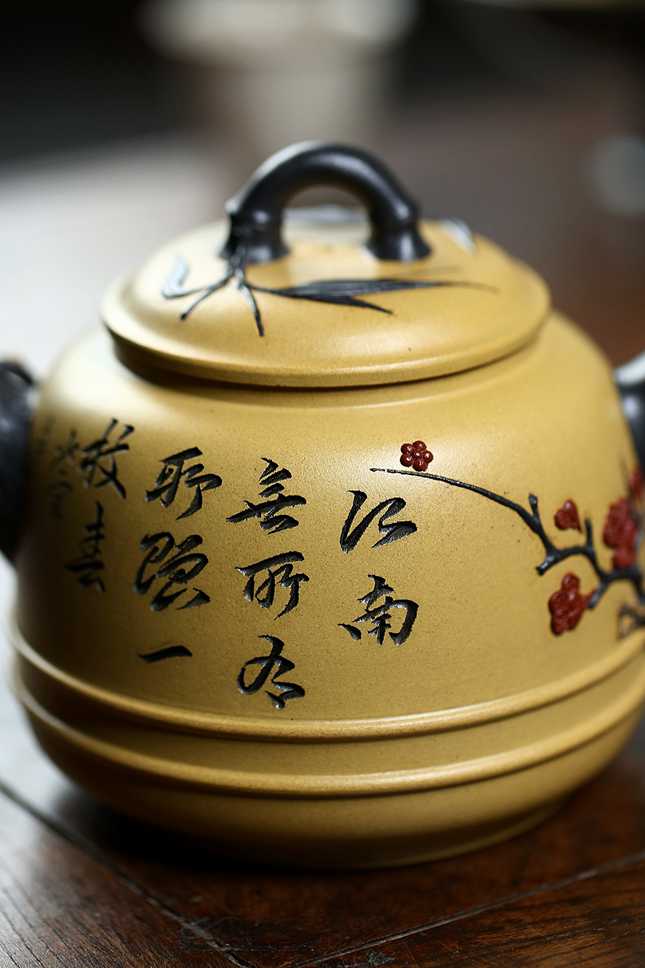 江南
無所有
聊贈一
枝春